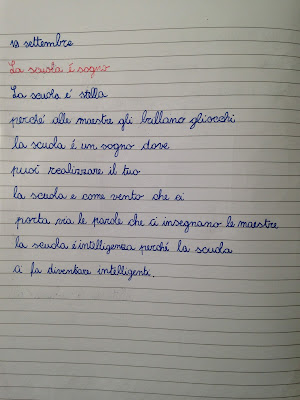 13 settembre
La scuola é sogno
La scuola e' stella
perché alle maestre gli brillano gliocchi
la scuola é un sogno dove
puoi realizzare il tuo
la scuola e come vento che ci
porta via le parole che ci insegnano le maestre
la scuola é intelligenza perché la scuola
ci fa diventare intelligenti.